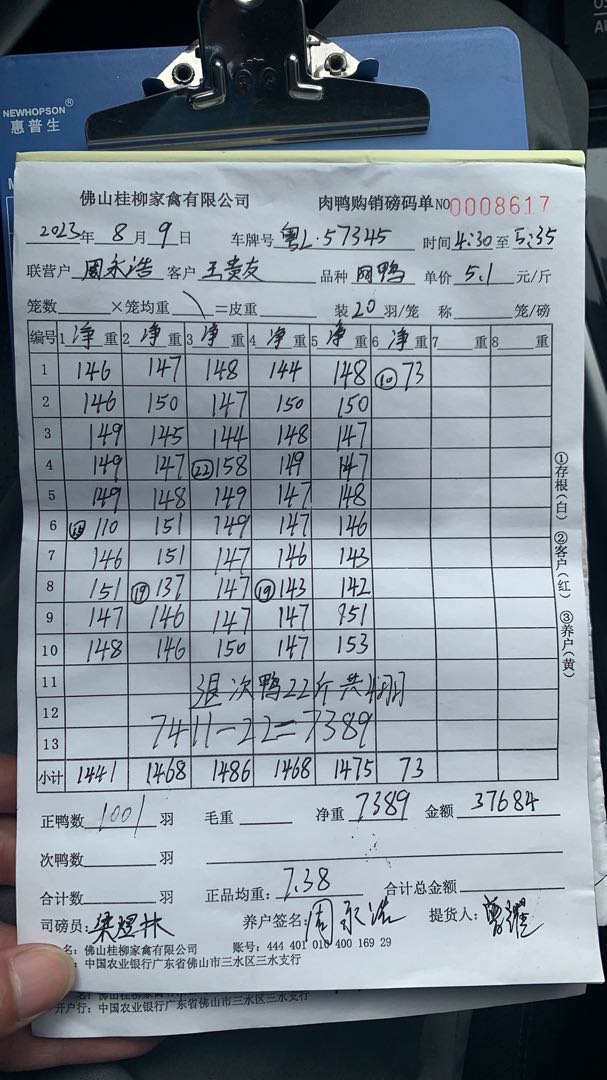 NEWHOPSON®
惠普生
佛山桂柳家禽有限公司 肉鸭购销磅码单 NO 0008617
2023年 8月 9日 车牌号 粤L·57345 时间 4:30 至 5:35
联营户 周永浩 客户 王贵友 品种 网鸭 单价 5.1 元/斤
笼数 ×笼均重 \ =皮重 装 20 羽/笼 称 笼/磅
编号 1 净 重 2 净 重 3 净 重 4 净 重 5 净 重 6 净 重 7 重 8 重
1 146 147 148 144 148 ⑩ 73
2 146 150 147 150 150
3 149 145 144 148 147
4 149 147 ㉒ 158 149 147
5 149 148 149 147 148
6 110 151 149 147 146
7 146 151 147 146 143
8 151 ⑲ 137 147 ⑲ 143 142
9 147 146 147 147 151
10 148 146 150 147 153
11 退次鸭22斤共4羽
12
13 7411-22=7389
小计 1441 1468 1486 1468 1475 73
①存根(白) ②客户(红) ③养户(黄)
正鸭数 1001 羽 毛重 净重 7389 金额 37684
次鸭数 羽
合计数 羽 正品均重: 7.38 合计总金额
司磅员: 梁煜林 养户签名: 周永浩 提货人:
名: 佛山桂柳家禽有限公司 账号: 444 401 010 400 169 29
: 中国农业银行广东省佛山市三水区三水支行
名: 佛山桂柳家禽有限公司
开户行: 中国农业银行广东省佛山市三水区三水支行